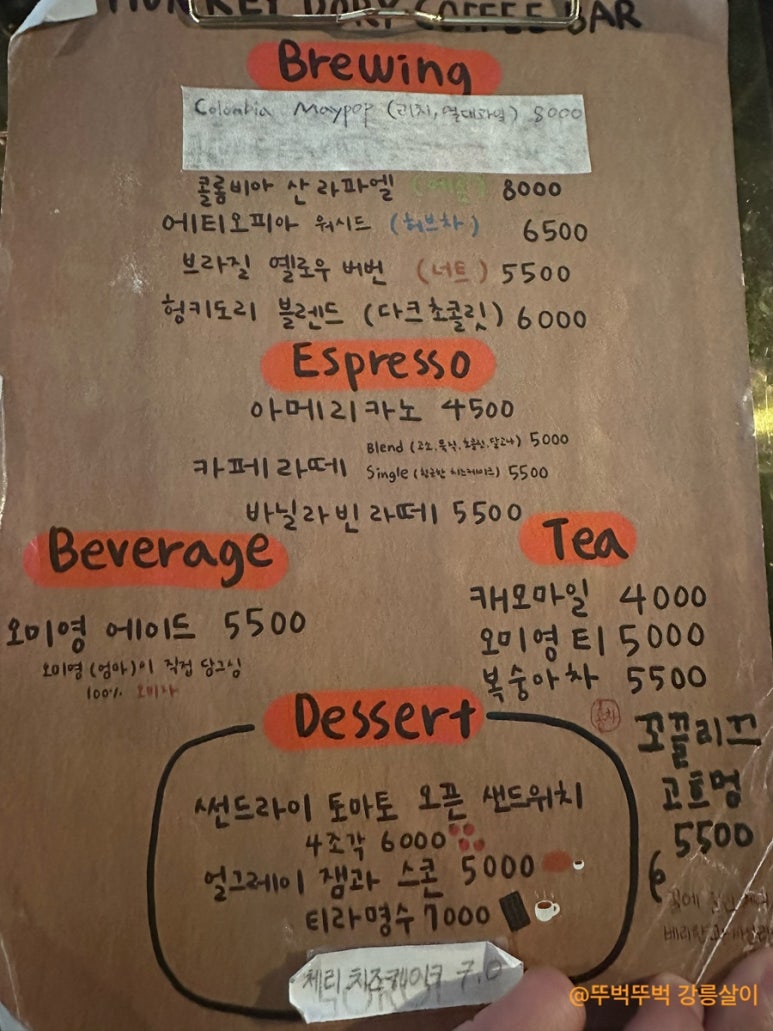 COFFEE BAR
Brewing
Colombia Maypop (리치, 열대과일) 8000
콜롬비아 산 라파엘 8000
에티오피아 워시드 (허브차) 6500
브라질 옐로우 버번 (너트) 5500
헝키도리 블렌드 (다크초콜릿) 6000
Espresso
아메리카노 4500
카페라떼 Blend 5000
Single 5500
바닐라빈라떼 5500
Beverage
오미영 에이드 5500
오미영 (엄마)이 직접 담그심
100% 오미자
Tea
캐모마일 4000
오미영티 5000
복숭아차 5500
홍차
꼬끌리꼬
고흐멍
5500
Dessert
썬드라이 토마토 오픈 샌드위치
4조각 6000
얼그레이 잼과 스콘 5000
티라명수 7000
체리 치즈케이크 7.0
@뚜벅뚜벅 강릉살이